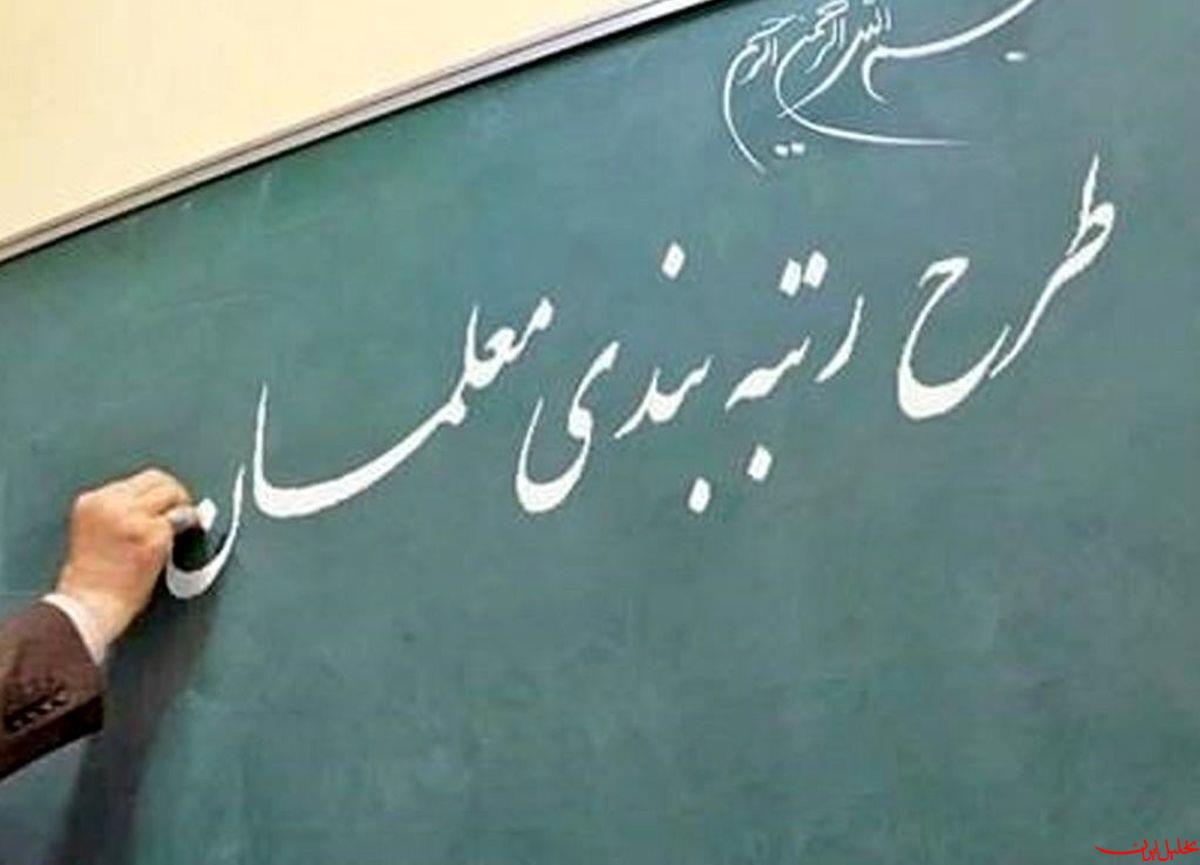 بسم الله الرحمن الرحیم
طرح رتبه بندی معلمان
تحلیل ایران